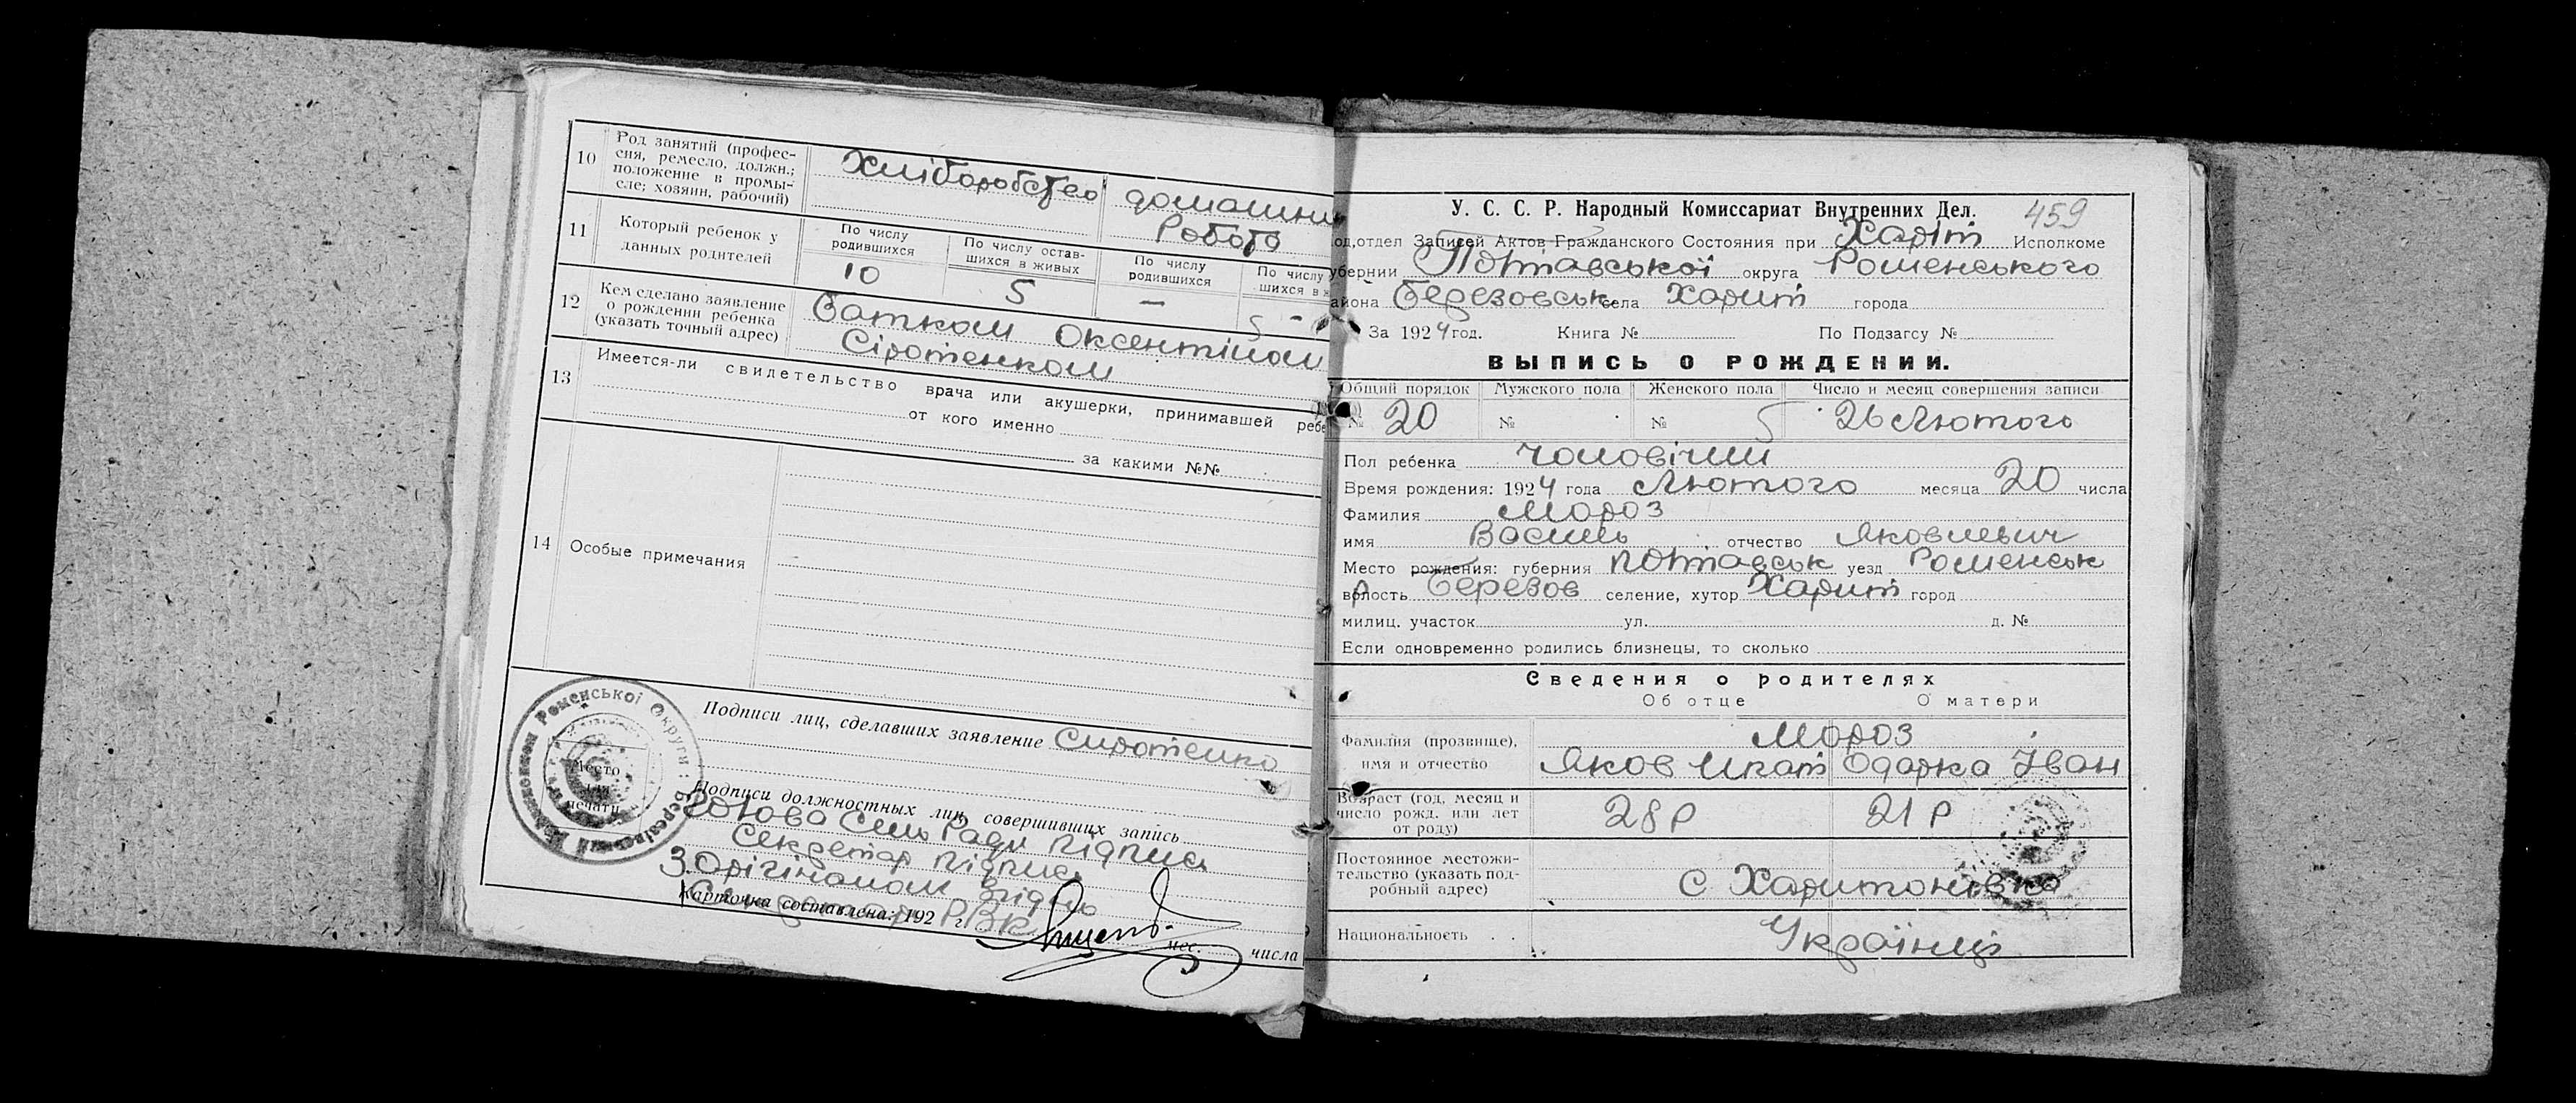 10 Род занятий (профес-
сия, ремесло, должн.;
положение в промы-
сле; хозяин, рабочий)
Хліборобство домашня
Робота
11 Который ребенок у
данных родителей
По числу
родившихся
По числу остав-
шихся в живых
По числу
родившихся
По числу
шихся в ж
10 5 — -
12 Кем сделано заявление
о рождении ребенка
(указать точный адрес)
Батком Оксентіном
Сіротенком
13 Имеется-ли свидетельство врача или акушерки, принимавшей ребе
от кого именно
за какими №№
14 Особые примечания
Подписи лиц, сделавших заявление Сиротенко
Роменської Округи
Место
для
печати
Подписи должностных лиц, совершивших запись
Голова Сель Ради підпись
Секретар підпись
З Орігіналом Згідно
Секретар РВК
Карточка составлена: 192 г. мес. числа
У. С. С. Р. Народный Комиссариат Внутренних Дел. 459
од,отдел Записей Актов Гражданского Состояния при Харіт Исполкоме
убернии Полтавської округа Роменського
айона Березовськ села Харит города
За 1924 год. Книга № По Подзагсу №
ВЫПИСЬ О РОЖДЕНИИ.
Общий порядок Мужского пола Женского пола Число и месяц совершения записи
№ 20 № № 26 Лютого
Пол ребенка чоловічий
Время рождения: 1924 года Лютого месяца 20 числа
Фамилия Мороз
имя Василь отчество Яковлевич
Место рождения: губерния Полтавськ уезд Роменськ
волость Березов селение, хутор Харит город
милиц. участок ул. д. №
Если одновременно родились близнецы, то сколько
Сведения о родителях
Об отце О матери
Фамилия (прозвище),
имя и отчество
Мороз
Яков Ипат Одарка Іван
Возраст (год, месяц и
число рожд. или лет
от роду)
28 р 21 р
Постоянное местожи-
тельство (указать под-
робный адрес)
С Харитоновка
Национальность . . Українці